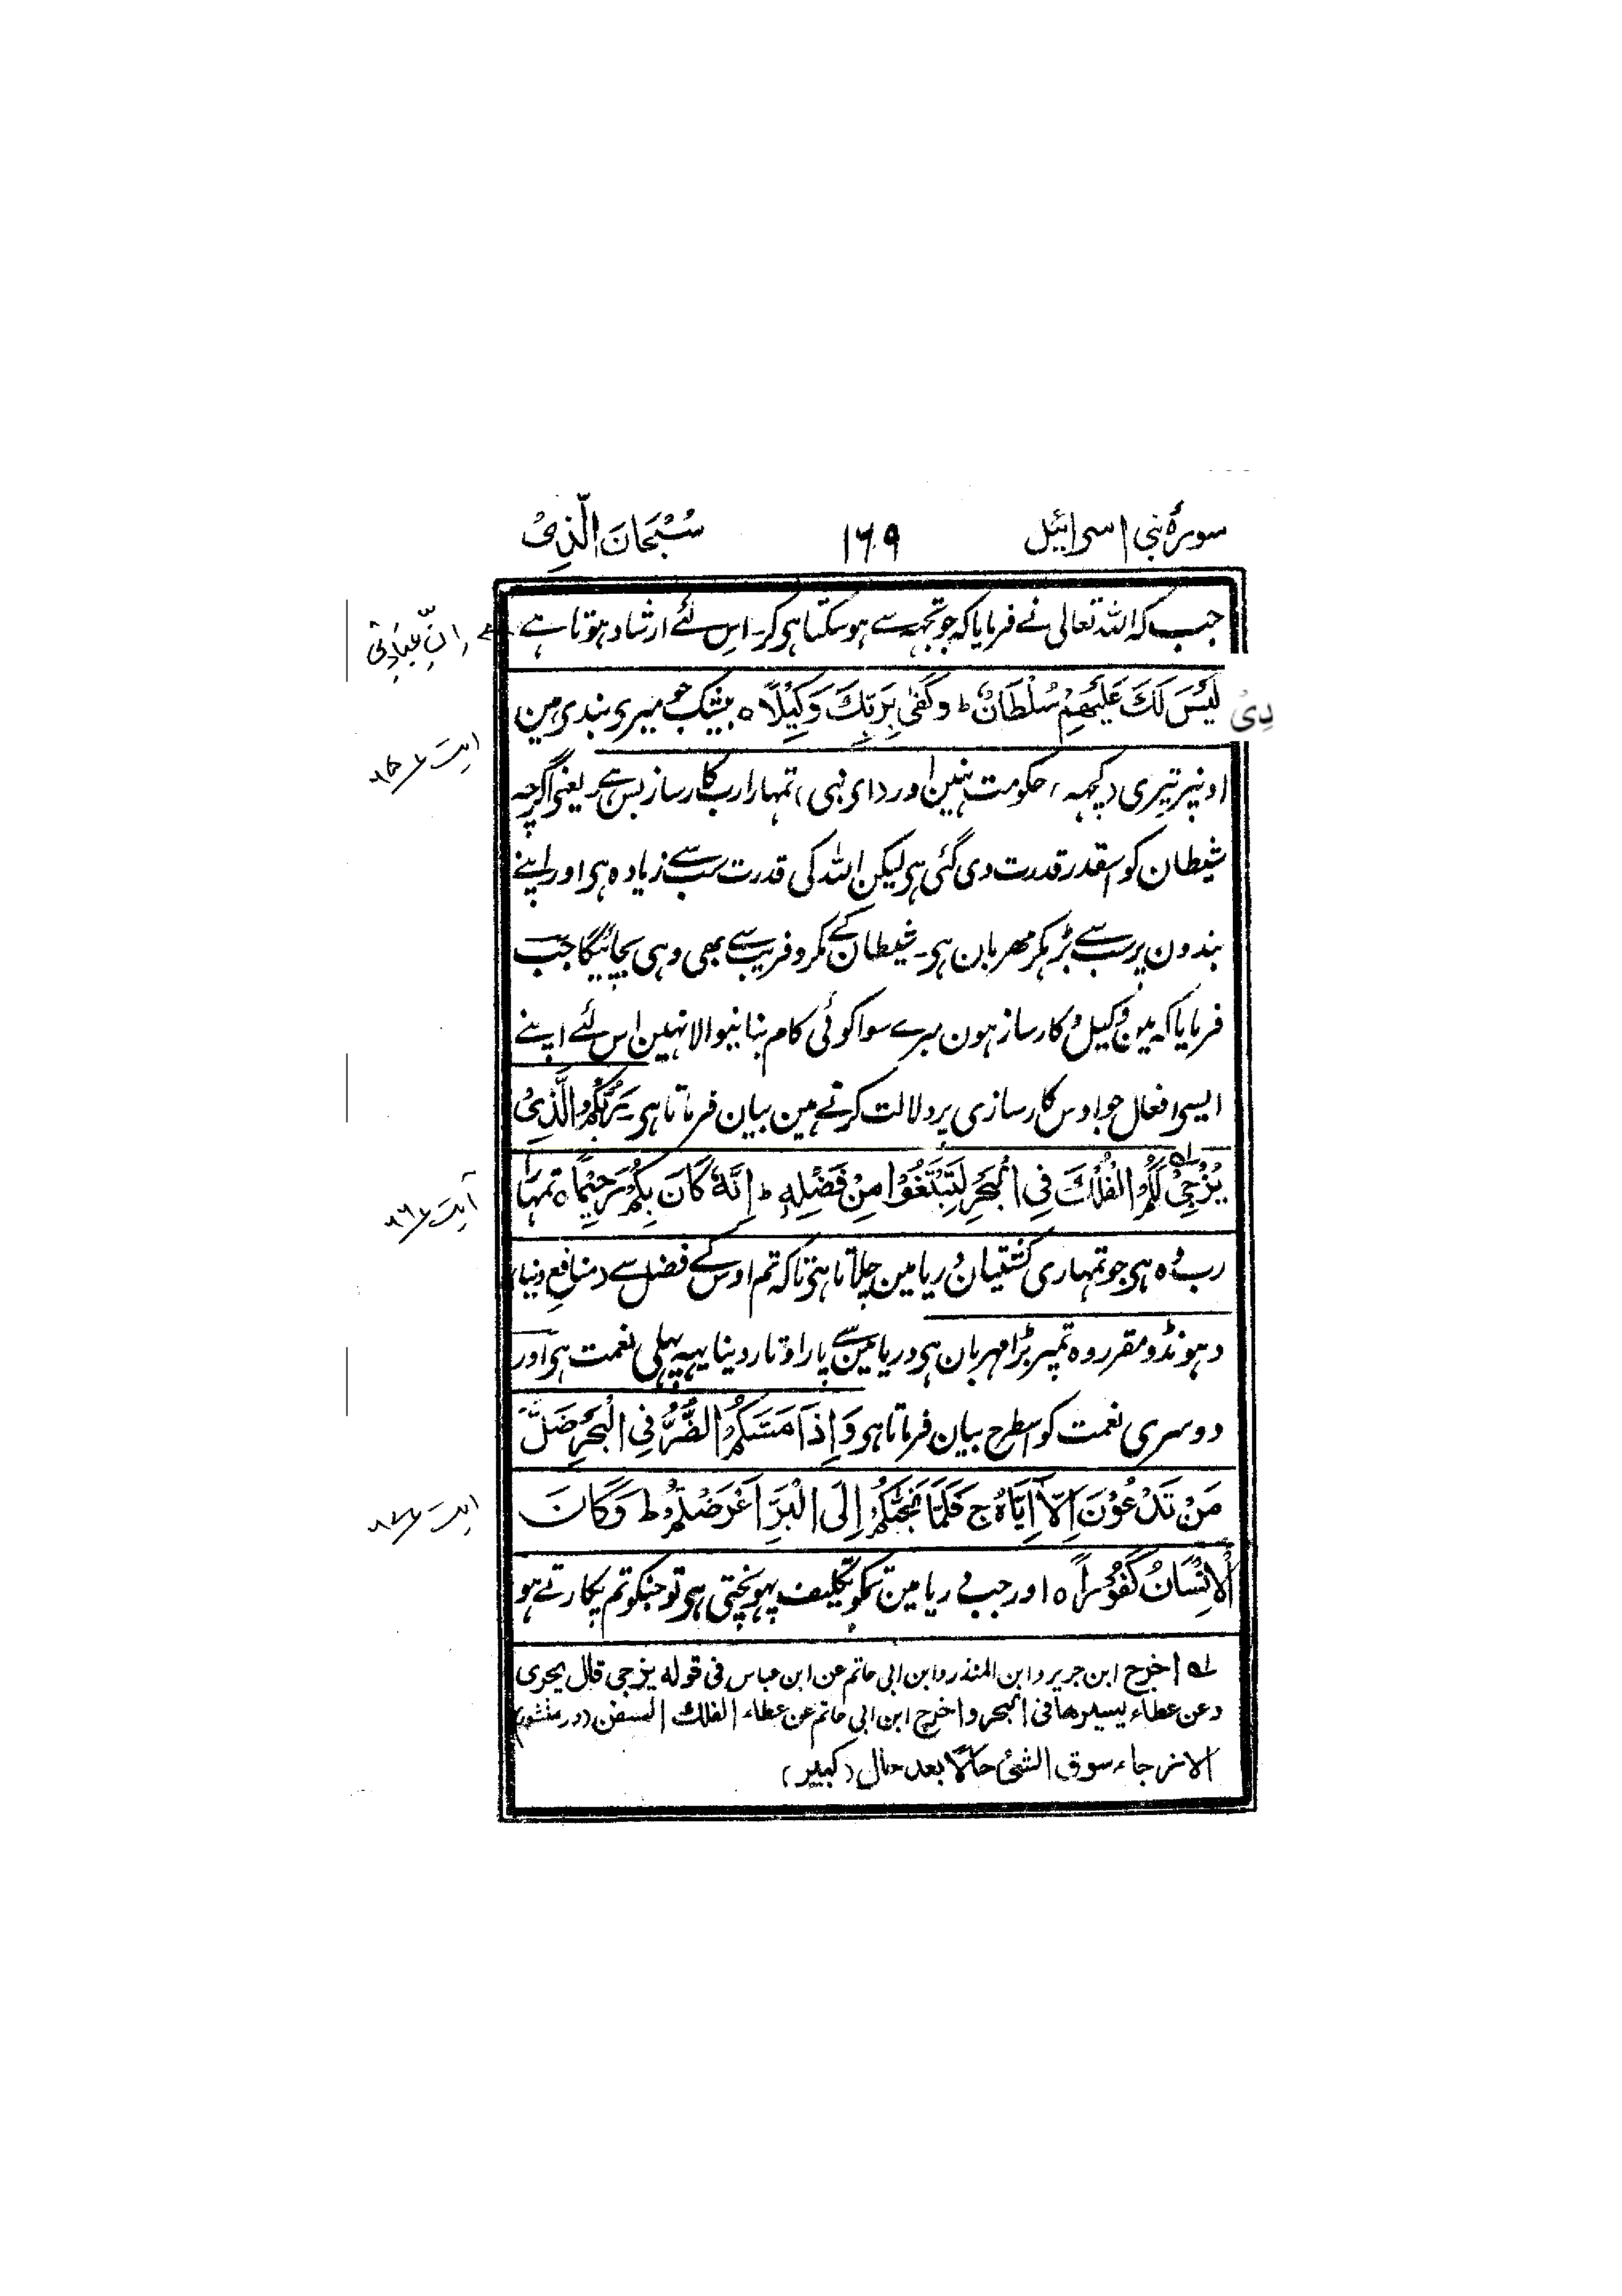 سورۂ بنی اسرائیل
۱۶۹
سُبْحَانَ الَّذِیْ
جب کہ اللہ تعالی نے فرمایا کہ جو تجھ سے ہو سکتا ہی کر۔ اس لئے ارشاد ہوتا ہے
اِنَّ عِبَادِیْ
لَیْسَ لَكَ عَلَیْهِمْ سُلْطَانٌ ط وَكَفٰی بِرَبِّكَ وَكِیْلًا ہ بیشک جو میری بندی ہین
دِیْ
ایت
اونپر تیری (کچھ) حکومت نہین اور (ای نبی) تمہارا رب کارساز بس ہے۔ یعنی اگرچہ
شیطان کو اسقدر قدرت دی گئی ہی لیکن اللہ کی قدرت سب سے زیادہ ہی اور اپنے
بندون پر سب سے بڑھکر مھربان ہی۔ شیطان کے مکر و فریب سے بھی وہی بچائیگا جب
فرمایا کہ مین وکیل و کارساز ہون میرے سوا کوئی کام بنانیوالا نہین اس لئے اپنے
ایسی افعال جو اوس کارسازی پر دلالت کرتے ہین بیان فرماتا ہی۔ رَبُّكُمُ الَّذِیْ
یُزْجِیْ لَكُمُ الْفُلْكَ فِی الْبَحْرِ لِتَبْتَغُوْا مِنْ فَضْلِهٖ ط اِنَّهٗ كَانَ بِكُمْ رَحِیْمًا ہ تمہارا
آیت
رب وہ ہی جو تمہاری کشتیان دریا مین چلاتا ہی تاکہ تم اوس کے فضل سے (منافع دنیا)
ڈہونڈو مقرر وہ تمپر بڑا مہربان ہی دریا مین سے پار اوتار دینا یہہ پہلی نعمت ہی اور
دوسری نعمت کو اسطرح بیان فرماتا ہی وَاِذَا مَسَّكُمُ الضُّرُّ فِی الْبَحْرِ ضَلَّ
مَنْ تَدْعُوْنَ اِلَّا اِیَّاهُ ج فَلَمَّا نَجّٰكُمْ اِلَی الْبَرِّ اَعْرَضْتُمْ ط وَكَانَ
ایت
الْاِنْسَانُ كَفُوْرًا ہ اور جب دریا مین تمکو تکلیف پہونچتی ہی تو جنکو تم پکارتے ہو
لہ اخرج ابن جریر وابن المنذر وابن ابی حاتم عن ابن عباس فی قولہ یزجی قال یجری
وعن عطاء یسیرھا فی البحر واخرج ابن ابی حاتم عن عطاء الفلك السفن (در منثور)
الازجاء سوق الشئ حالا بعد حال (کبیر)